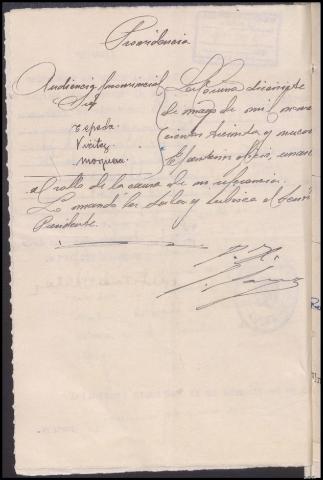 Providencia
Audiencia provincial
Sres
Tepeda.
Vieitez
Mosquera
La Coruña diecisiete
de mayo de mil nove
cientos treinta y nueve
El anterior oficio, únase
al rollo de la causa de su referencia.
Lo mandó la Sala y rubrica el Señor
Presidente.